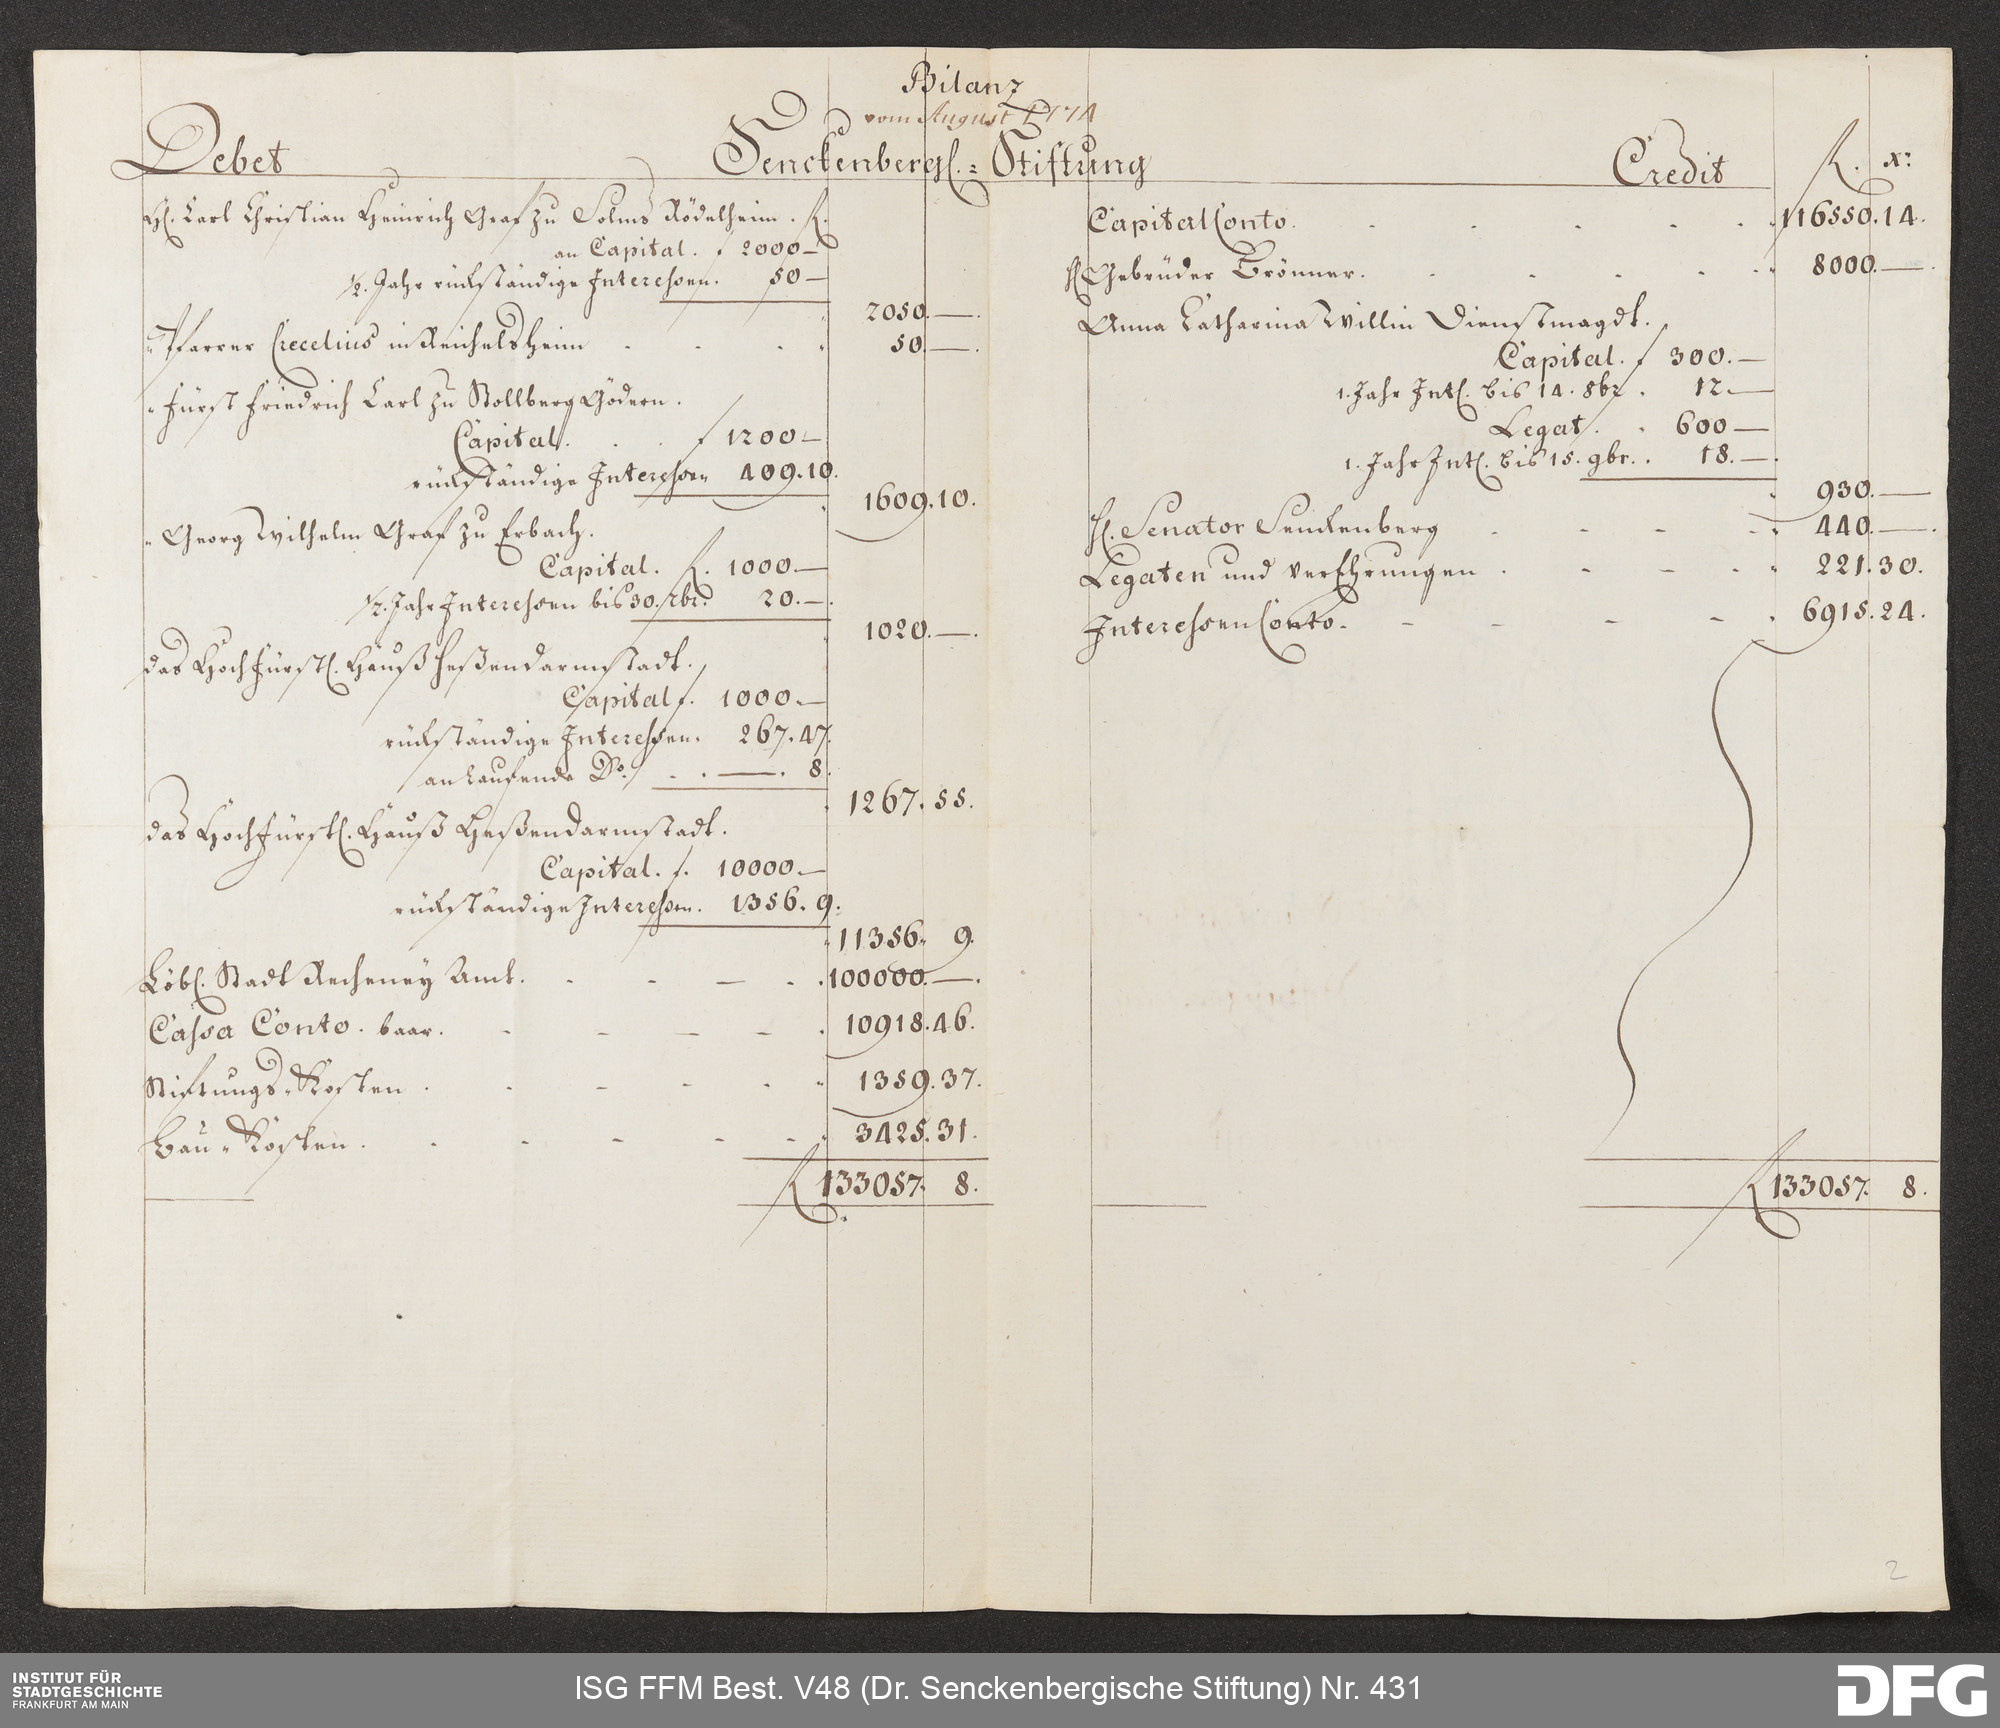 Bilanz
vom August 1774
Debet Senckenbergl.= Stiftung Credit
fl. xr.
Hl. Carl Christian Heinrich Graf zu Solms Rödelheim. fl.
an Capital. f 2000 —
1/2. Jahr rückständige Interessen. 50 —
2050. —.
" Pfarrer Crecelius in Reichelsheim - - - " 50. —.
" Fürst Friedrich Carl zu Stollberg Gödern.
Capital. . . f 1200 —
rückständige Interessen 409.10.
1609.10.
" Georg Wilhelm Graf zu Erbach.
Capital. fl. 1000. —
1/2. Jahr Interessen bis 30. xbr. 20. —.
1020. —.
das Hochfürstl. Hauß Heßendarmstadt.
Capital f. 1000. —
rückständige Interessen. 267.47.
an laufende Do. - . — . 8.
1267.55.
das Hochfürstl. Hauß Heßendarmstadt.
Capital. f. 10000. —
rückständige Interessen. 1356. 9.
11356. 9.
Löbl. Stadt Recheney Amt. - - - . 100000. —.
Cassa Conto. baar. - - - - . 10918.46.
Stiftungs-Kosten . - - - - " 1359.37.
Bau-Kosten . - - - - - 3425.31.
fl 133057. 8.
Capital Conto. . . . . . 116550.14.
Hl Gebrüder Brönner. - . . . . 8000. —.
Anna Catharina Willin Dienstmagdt.
Capital. f 300. —
1. Jahr Intl. bis 14. 8br . 12. —
Legat. . 600 —
1. Jahr Intl. bis 15. 9br. . 18. —.
930. —
Hl. Senator Senckenberg - - - - . 440. —.
Legaten und Verehrungen . - - - . 221.30.
Interessen Conto - - - - - . 6915.24.
fl 133057. 8.
2
INSTITUT FÜR
STADTGESCHICHTE
FRANKFURT AM MAIN
ISG FFM Best. V48 (Dr. Senckenbergische Stiftung) Nr. 431
DFG